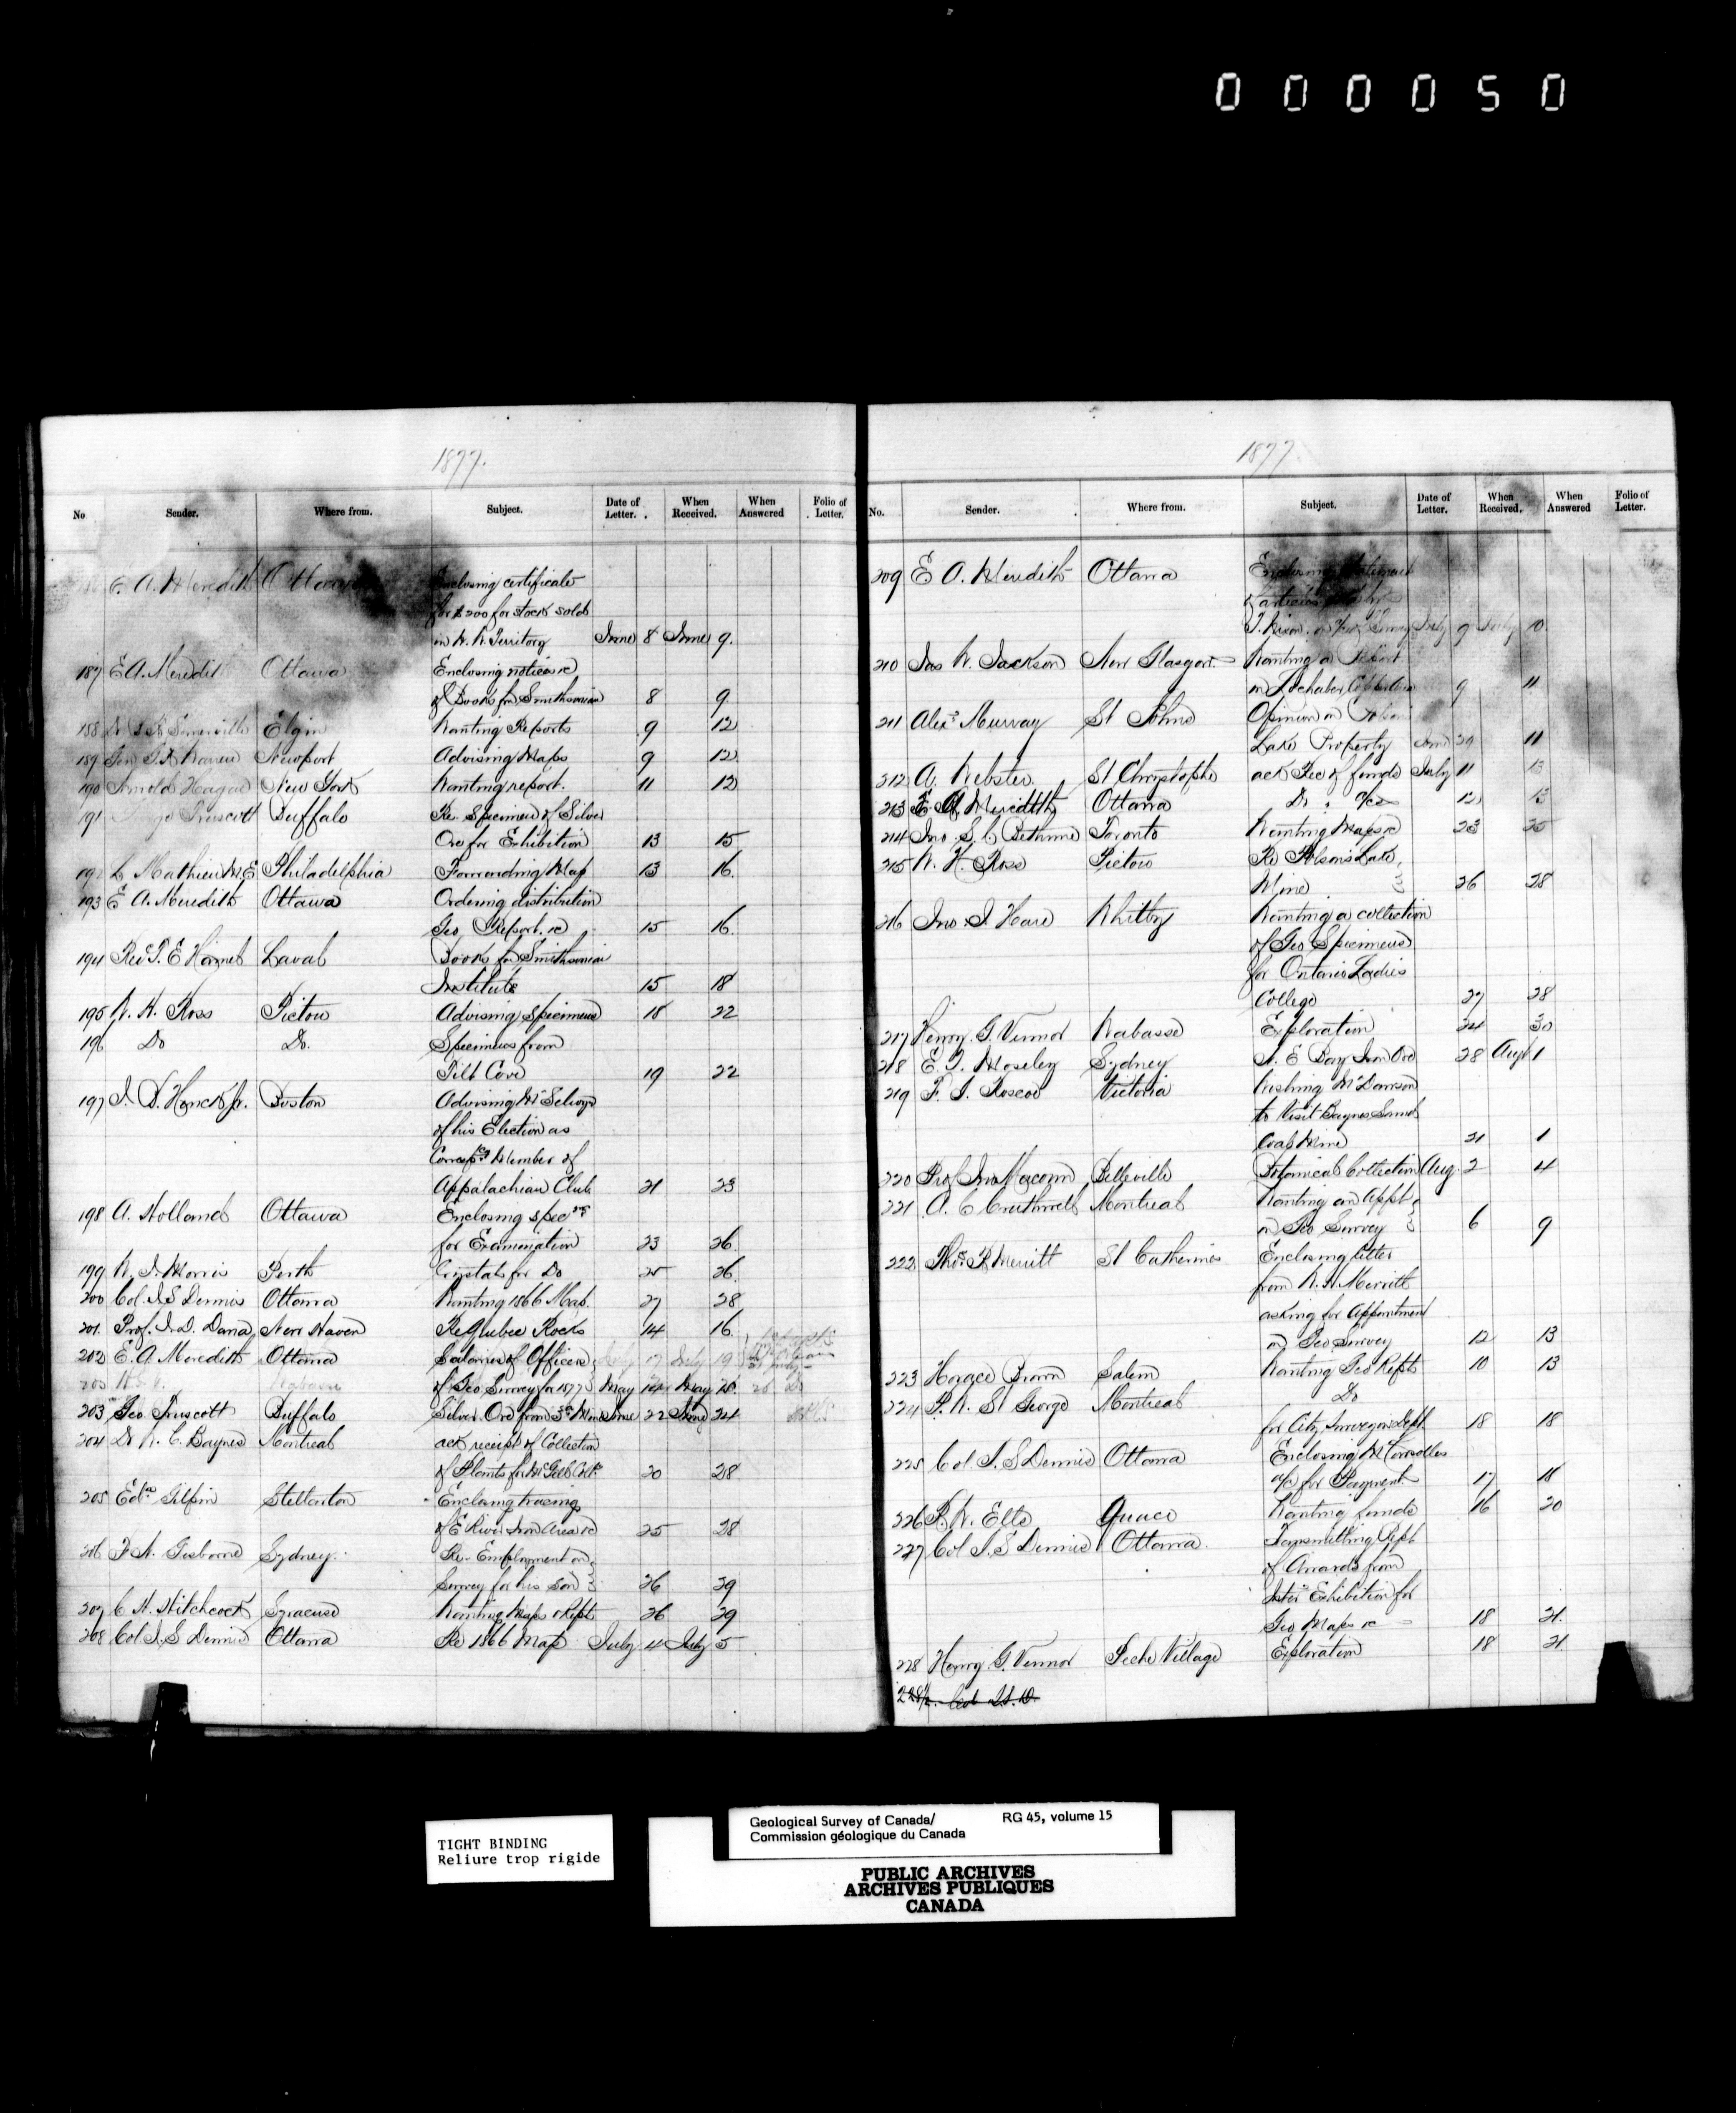 000050
1877.
No Sender. Where from. Subject. Date of Letter. When Received. When Answered Folio of Letter.
E. A. Meredith Ottawa Enclosing certificate
for $200 for stock sold
in N. W. Territory June 8 June 9.
187 E A. Meredith Ottawa Enclosing notices &c
of Books for Smithsonian 8 9
188 Somerville Elgin Wanting Reports 9 12
189 Gen G. K Warren Newport Advising Maps 9 12
190 Arnold Hague New York Wanting report. 11 12
191 Truscott Buffalo Re Specimen of Silver
Ore for Exhibition 13 15
192 L Mathieu M.E Philadelphia Forwarding Map 13 16
193 E A. Meredith Ottawa Ordering distribution
Geo Report. &c 15 16
194 Revd T. E Hamel Laval Books for Smithsonian
Institute 15 18
195 W. H. Ross Pictou Advising specimens 18 22
196 Do Do. Specimens from
Tilt Cove 19 22
197 Boston Advising Mr Selwyn
of his Election as
Correspg Member of
Appalachian Club 21 23
198 A. Holland Ottawa Enclosing specns
for Examination 23 26
199 W. J. Morris Perth Crystals for Do 25 26
200 Col. J S Dennis Ottawa Wanting 1866 Map. 27 28
201. Prof. J. D. Dana New Haven Re Quebec Rocks 14 16
202 E. A. Meredith Ottawa Salaries of Officers July 17 July 19
of Geo Survey for 1877 May 14 May 15
203 Geo. Truscott Buffalo Silver Ore from Mine June 22 June 24
204 Dr W. C. Baynes Montreal ack receipt of Collection
of Plants for McGill Coll. 20 28
205 Edn Gilpin Stellarton Enclosing tracing
of E River Iron Area &c 25 28
206 F. N. Gisborne Sydney. Re. Employment on
Survey for his son 26 29
207 C H. Hitchcock Syracuse Wanting Maps & Repts 26 29
208 Col J. S Dennis Ottawa Re 1866 Map July 4 July 5
1877.
No. Sender. Where from. Subject. Date of Letter. When Received. When Answered Folio of Letter.
209 E A. Meredith Ottawa Enclosing
of articles
July 9 July 10.
210 Jas W. Jackson New Glasgow Wanting a Report
on Lochaber Copper 9 11
211 Alexr Murray St Johns Opinion on
Lake Property June 29 11
212 A. Webster St Chrystophe ack Rec of funds July 11 13
213 E A Meredith Ottawa Do a/cs 12 13
214 Jno. S. C Bethune Toronto Wanting Maps &c 23 25
215 W. H. Ross Pictou Re Polson's Lake
Mine 26 28
216 Jno. J. Hare Whitby Wanting a collection
of Geo Specimens
for Ontario Ladies
College 27 28
217 Henry. G. Vennor Wabassee Exploration 24 30
218 E. T. Moseley Sydney S. E Bay Iron Ore 28 Augt 1
219 F. J. Roscoe Victoria Wishing Mr Dawson
to Visit Baynes Sound
Coal Mine 21 1
220 Prof Jno Macoun Belleville Botanical Collection Aug. 2 4
221 A. C Cruthwell Montreal Wanting an Appt
on Geo Survey 6 9
222 Thos. R Merritt St Catherines Enclosing letter
from W. H Merritt
asking for Appointment
on Geo Survey 12 13
223 Horace Brown Salem Wanting Geo Repts 10 13
224 P. W. St George Montreal Do
for City Surveyor's Dept 18 18
225 Col. J. S Dennis Ottawa Enclosing
a/c for Payment 17 18
226 R. W. Ells Quaco Wanting funds 16 20
227 Col J. S Dennis Ottawa. Transmitting Rept
of Awards from
Inter Exhibition for
Geo Maps &c 18 21.
228 Henry. G. Vennor Peche Village Exploration 18 21
228½. Col J.S. D.
TIGHT BINDING
Reliure trop rigide
Geological Survey of Canada/ RG 45, volume 15
Commission géologique du Canada
PUBLIC ARCHIVES
ARCHIVES PUBLIQUES
CANADA